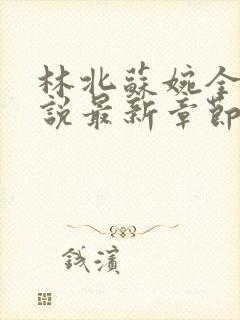 林北蘇婉全
說最新章節
錢濱